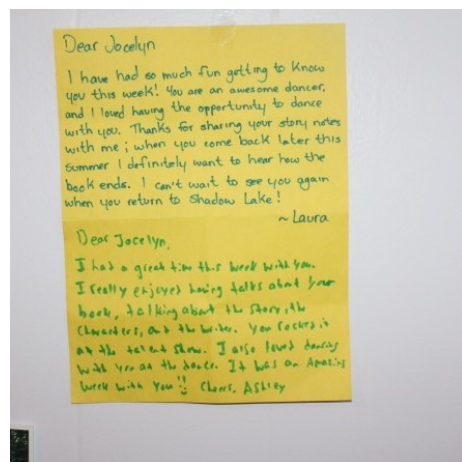 Dear Jocelyn
I have had so much fun getting to know
you this week! You are an awesome dancer,
and I loved having the opportunity to dance
with you. Thanks for sharing your story notes
with me; when you come back later this
summer I definitely want to hear how the
book ends. I can't wait to see you again
when you return to Shadow Lake!
~ Laura
Dear Jocelyn,
I had a great time this week with you.
I really enjoyed having talks about your
book, talking about the story, the
characters, and the writer. You rocked it
at the talent show. I also loved dancing
with you at the dance. It was an Amazing
week with you!! Cheers, Ashley